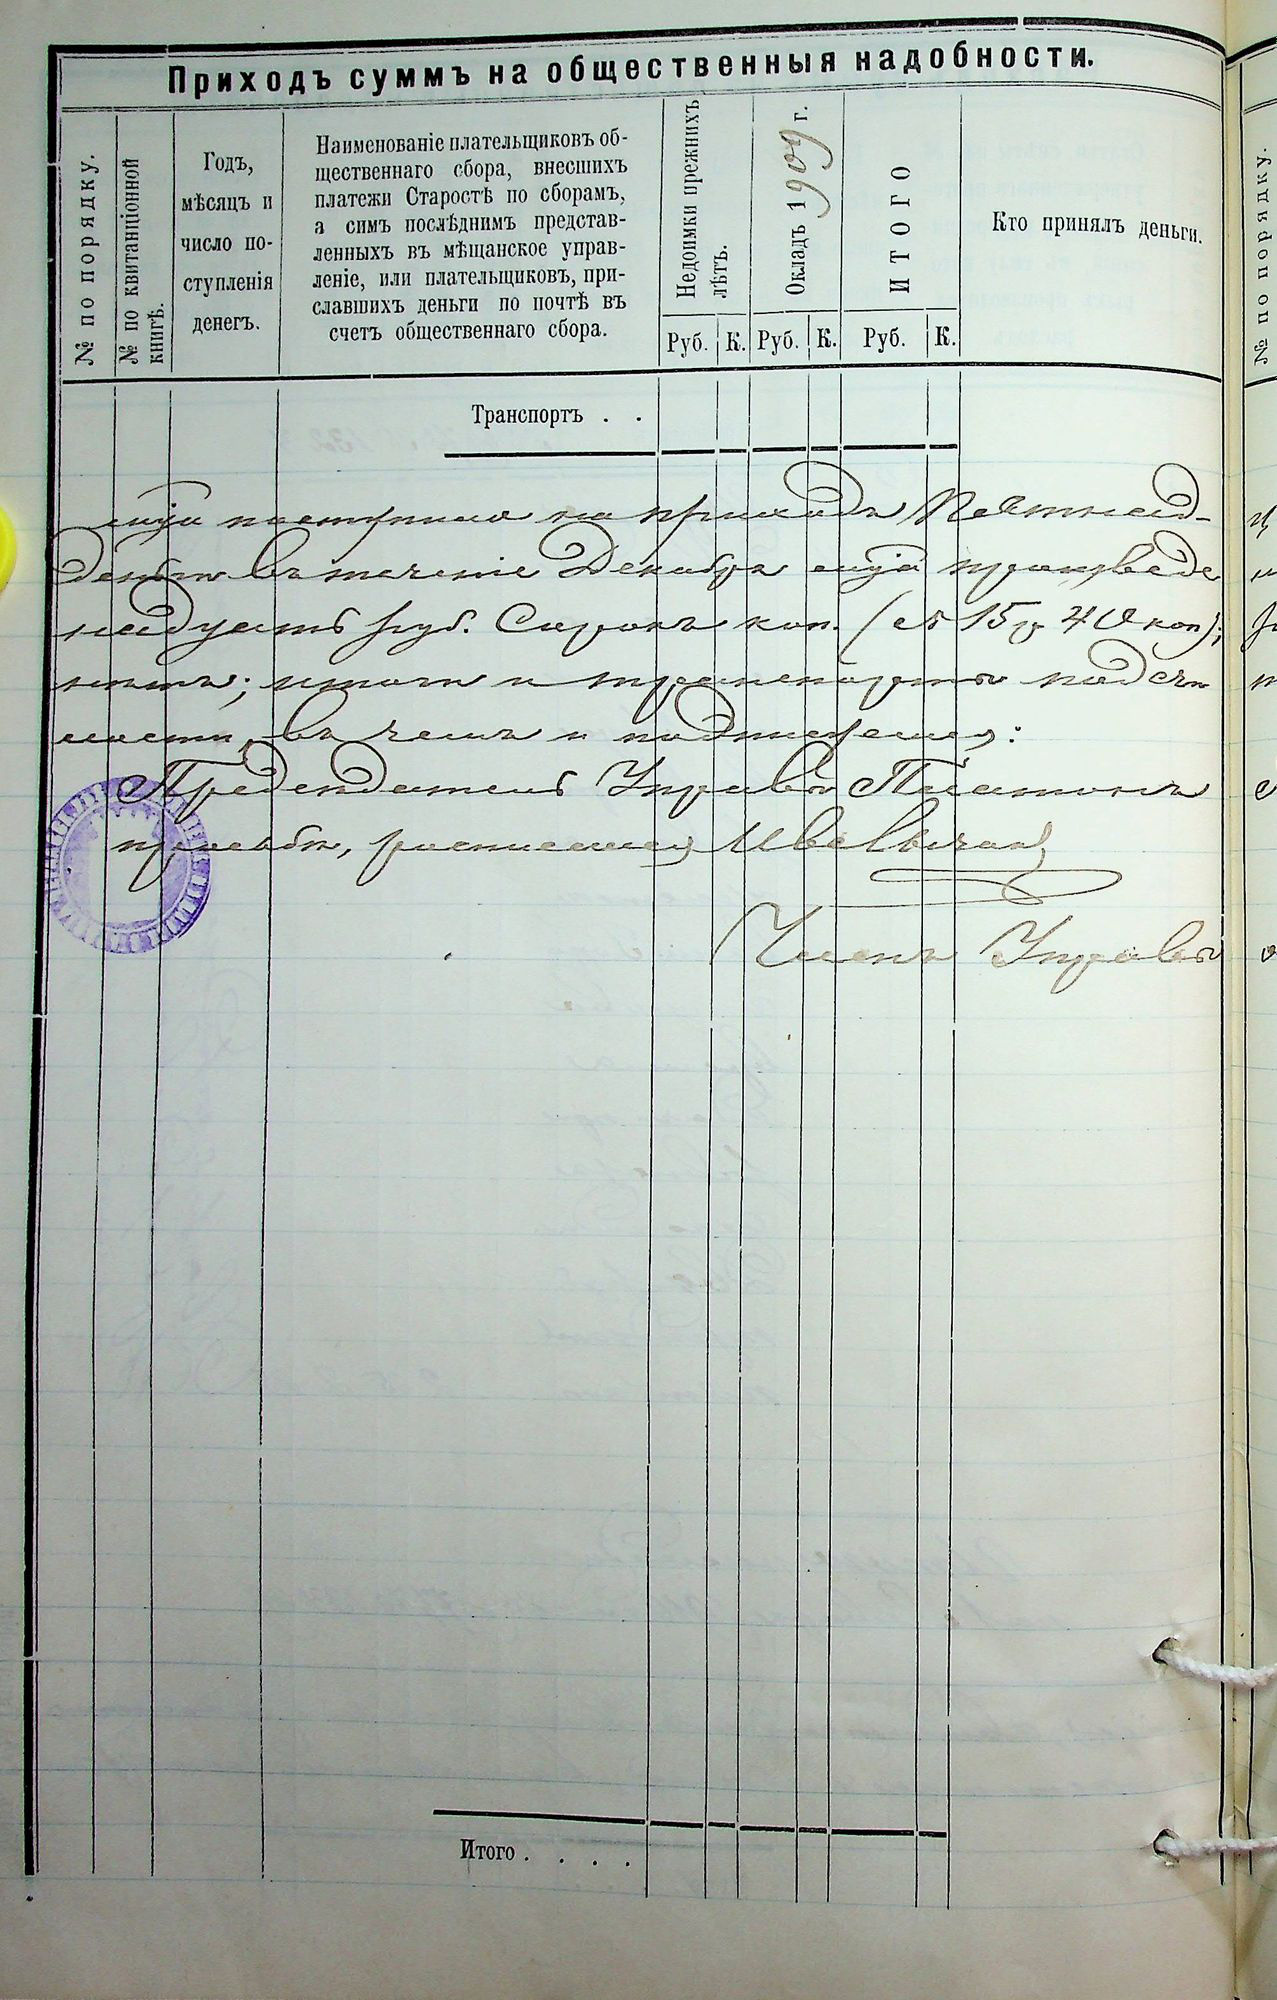 Приходъ суммъ на общественныя надобности.
№ по порядку.
№ по квитанціонной
книгѣ.
Годъ,
мѣсяцъ и
число по-
ступленія
денегъ.
Наименованіе плательщиковъ об-
щественнаго сбора, внесшихъ
платежи Старостѣ по сборамъ,
а симъ послѣднимъ представ-
ленныхъ въ мѣщанское управ-
леніе, или плательщиковъ, при-
славшихъ деньги по почтѣ въ
счетъ общественнаго сбора.
Недоимки прежнихъ
лѣтъ.
Окладъ 1909 г.
ИТОГО
Кто принялъ деньги.
Руб. К. Руб. К. Руб. К.
№ по порядку.
Транспортъ . .
поступило на приходъ Пятнад-
въ теченіе Декабря произведе
руб. Сорокъ коп. (15 р 40 коп);
итоги и транспорты подсчи
въ чемъ и подписуемся:
Предсѣдатель Управы Платонъ
просьбѣ, росписался
Членъ Управы
Итого . . . .